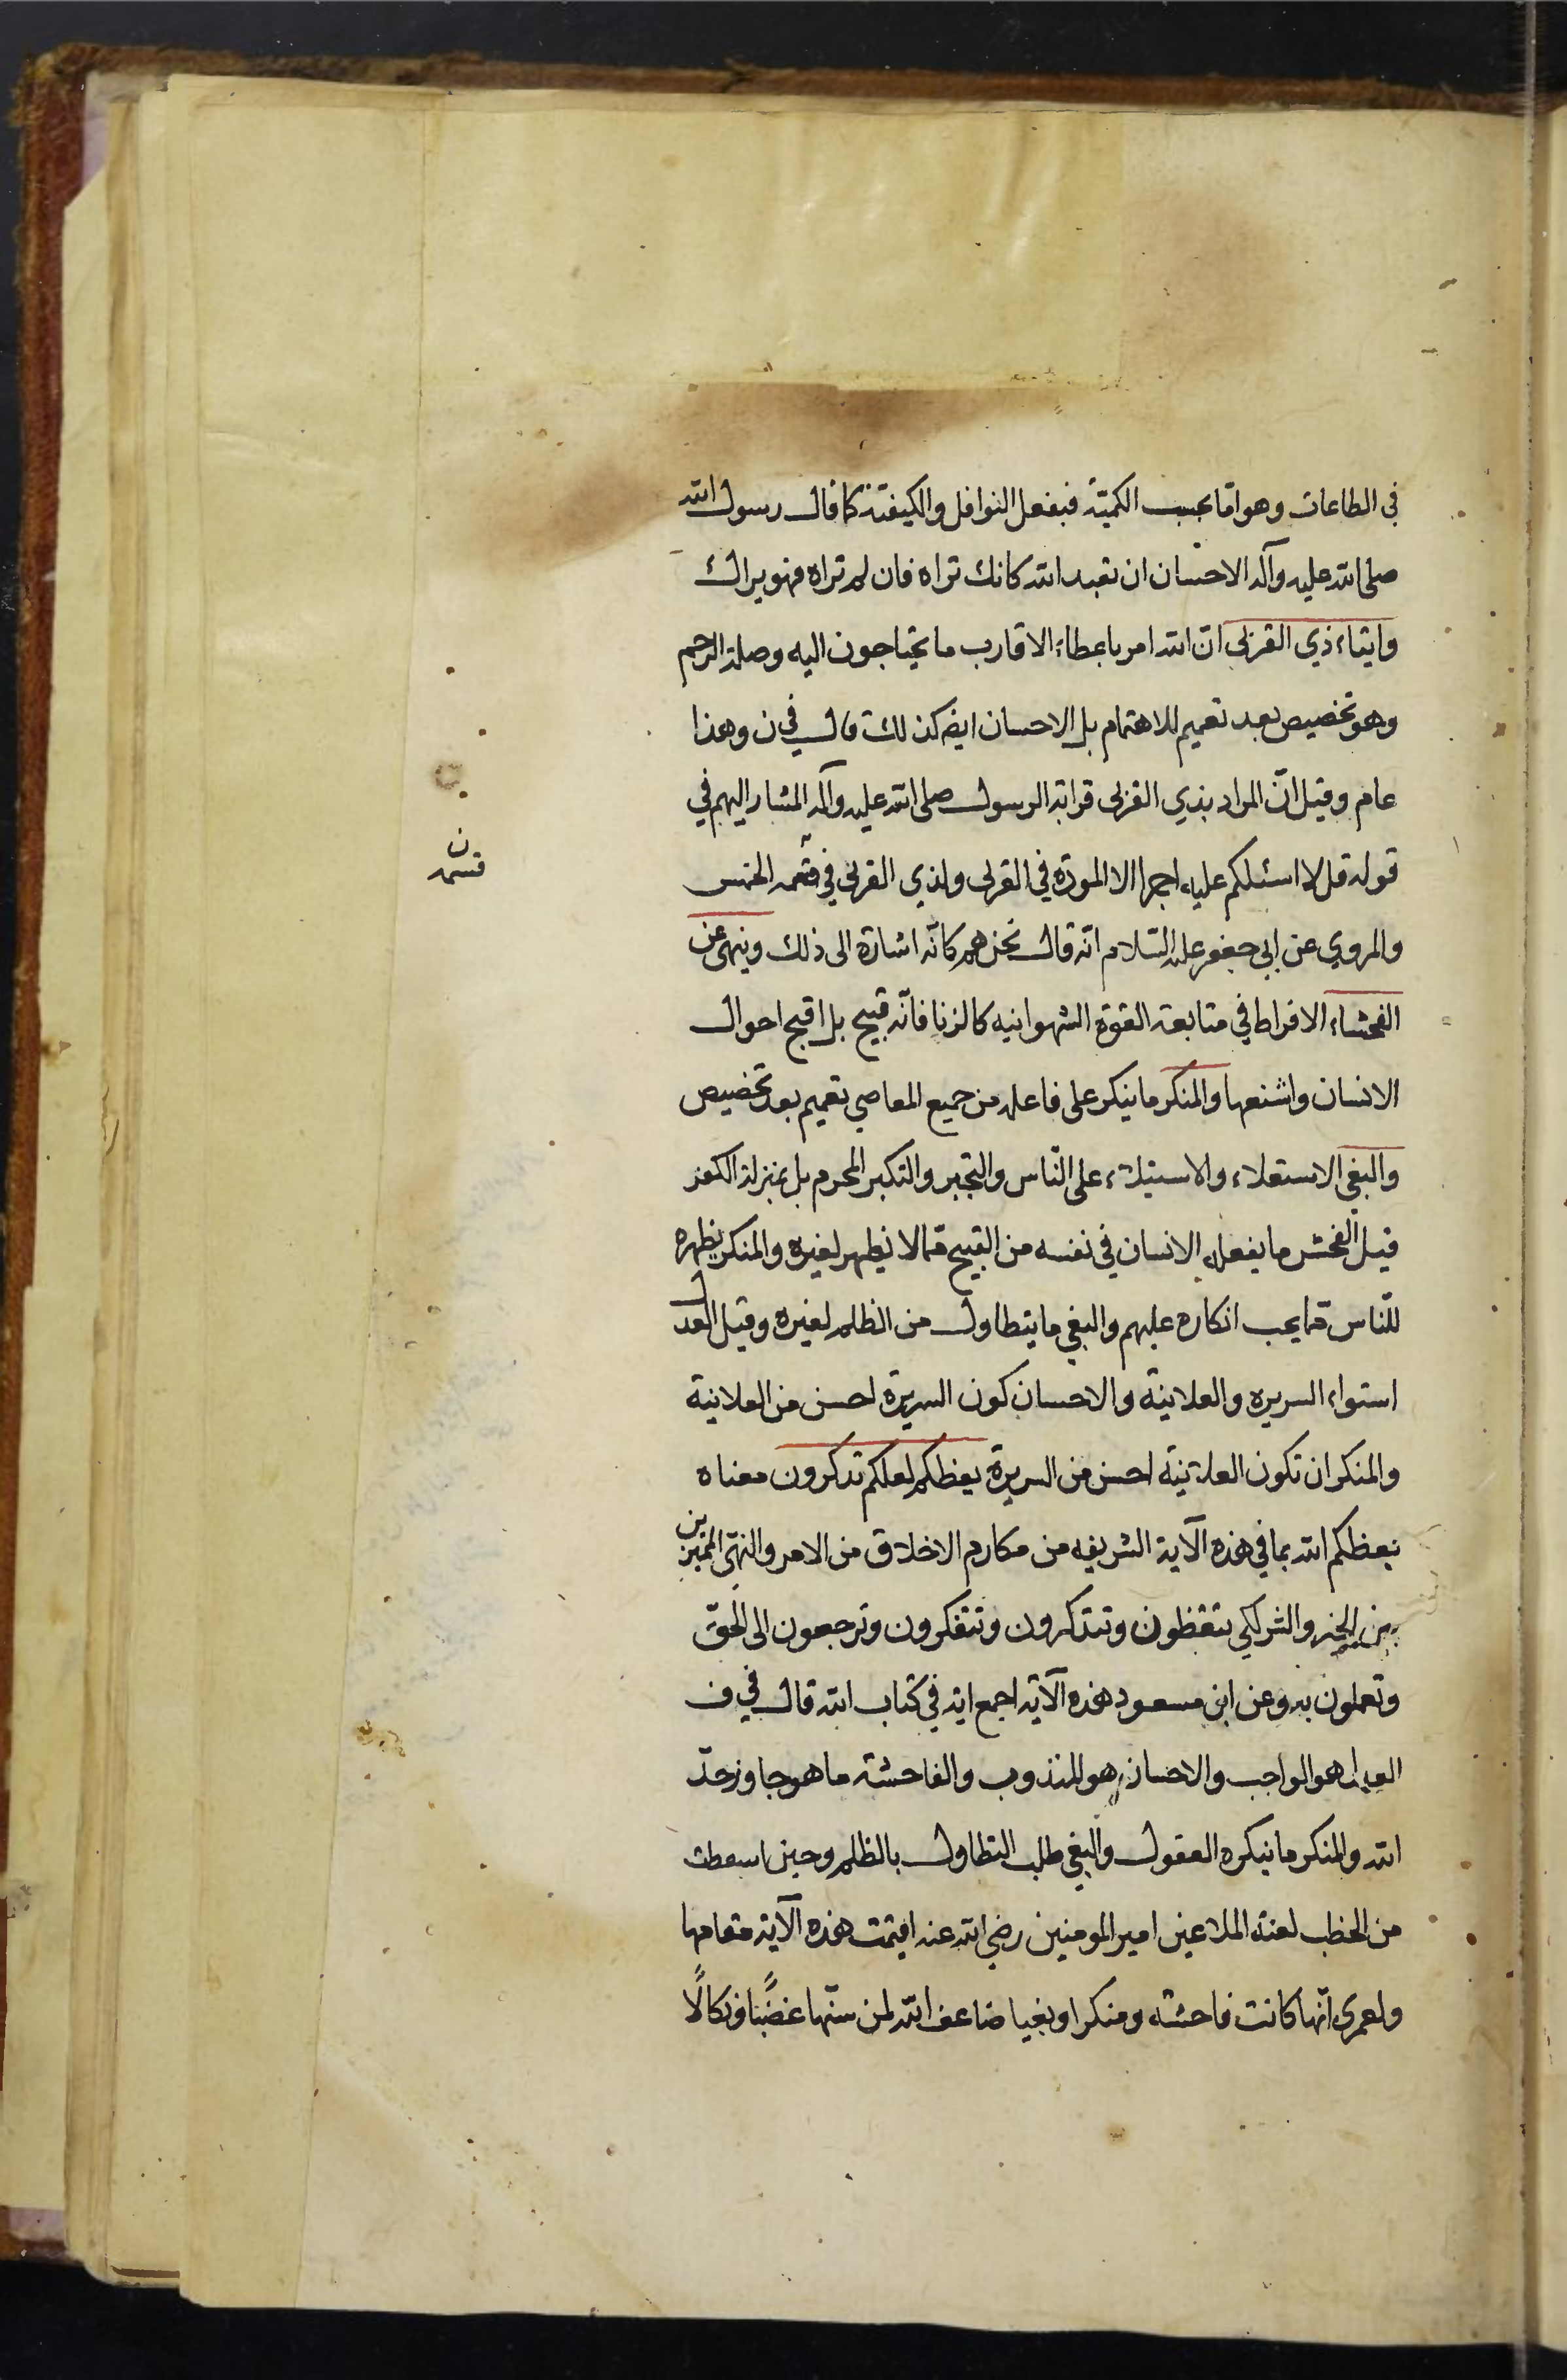 في الطاعات وهو اما بحسب الكميّة فبفعل النوافل والكيفيّة كما قال رسول الله
صلى الله عليه وآله الاحسان ان تعبد الله كانك تراه فان لم تراه فهو يراك
وايتاء ذي القربى ان الله امر باعطاء الاقارب ما يحتاجون اليه وصلة الرحم
وهو تخصيص بعد تعميم للاهتمام بل الاحسان ايضا كذلك قال في ن وهذا
عام وقيل انّ المراد بذي القربى قرابة الرسول صلى الله عليه وآله المشار اليهم في
قوله قل لا اسئلكم عليه اجرا الا المودة في القربى ولذي القربى في قسمة الخمس
قسمة ن
والمروي عن ابي جعفر عليه السّلام انّه قال نحن هم كانّه اشارة الى ذلك وينهى عن
الفحشاء الافراط في متابعة القوة الشهوانيه كالزنا فانّه قبيح بل اقبح احوال
الانسان واشنعها والمنكر ما ينكر على فاعله من جميع المعاصي تعميم بعد تخصيص
والبغي الاستعلاء والاستيلاء على النّاس والتجبر والتكبر المحرم بل بمنزلة الكفر
قيل الفحش ما يفعله الانسان في نفسه من القبيح ممّا لا يظهر لغيره والمنكر يظهره
للنّاس مما يجب انكاره عليهم والبغي ما يتطاول من الظلم لغيره وقيل العدل
استواء السريره والعلانية والاحسان كون السريرة احسن من العلانية
والمنكر ان تكون العلانية احسن من السريرة يعظكم لعلكم تذكرون معناه
يعظكم الله بما في هذه الآية الشريفه من مكارم الاخلاق من الامر والنهي المميزين
بين الخير والشر لكي تتعظون وتتذكرون وتتفكرون وترجعون الى الحقّ
وتعملون به وعن ابن مسعود هذه الآية اجمع اية في كتاب الله قال في ف
العدل هو الواجب والاحسان هو المندوب والفاحشة ما هو جاوز حدّ
الله والمنكر ما ينكره العقول والبغي طلب التطاول بالظلم وحين اسقطت
من الخطب لعنة الملاعين امير المومنين رضي الله عنه اقيمت هذه الآية مقامها
ولعمري انّها كانت فاحشة ومنكرا وبغيا ضاعف الله لمن سنّها غضبًا ونكالًا